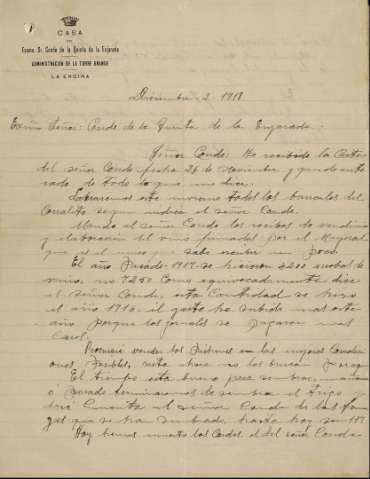 CASA
DEL
Excmo. Sr. Conde de la Quinta de la Enjarada
ADMINISTRACION DE LA TORRE GRANDE
LA ENCINA
Diciembre 2 1918
Exmo Señor: Conde de la Quinta de la Enjarada:
Señor Conde: He recibido la Carta
del señor Conde fecha 26 de Noviembre y quedo ente
rado de todo lo que me dice.
Labraremos este invierno todos los bancales del
Corralto segun indica el señor Conde.
Mando al señor Conde los recibos de vendimia
y elaboracion del vino firmados por el Mayoral
que es el unico que sabe escribir un poco.
El año pasado 1917 se hicieron 6200 arrobas de
vino, no 7250 Como equivocadamente dice
el señor Conde, esta Cantidad se hizo
el año 1916. el gasto ha subido mas este
año porque los jornales se pagaron mas
Caros.
Procuraré vender los en las mejores Condici
ones posibles, esta ahora no los busca
El tiempo está bueno para sembrar, mañana
ó pasado terminaremos de sembrar el trigo y
daré Cuenta al señor Conde de las fane
gas que se han sembrado, hasta hoy son 117
Hoy hemos muerto los Cerdos, el del señor Conde